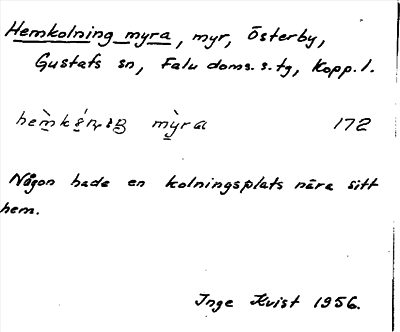 Hemkolning myra, myr, Österby,
Gustafs sn, Falu doms. s. tg, Kopp. l.
172
Någon hade en kolningsplats nära sitt
hem.
Inge Kvist 1956.